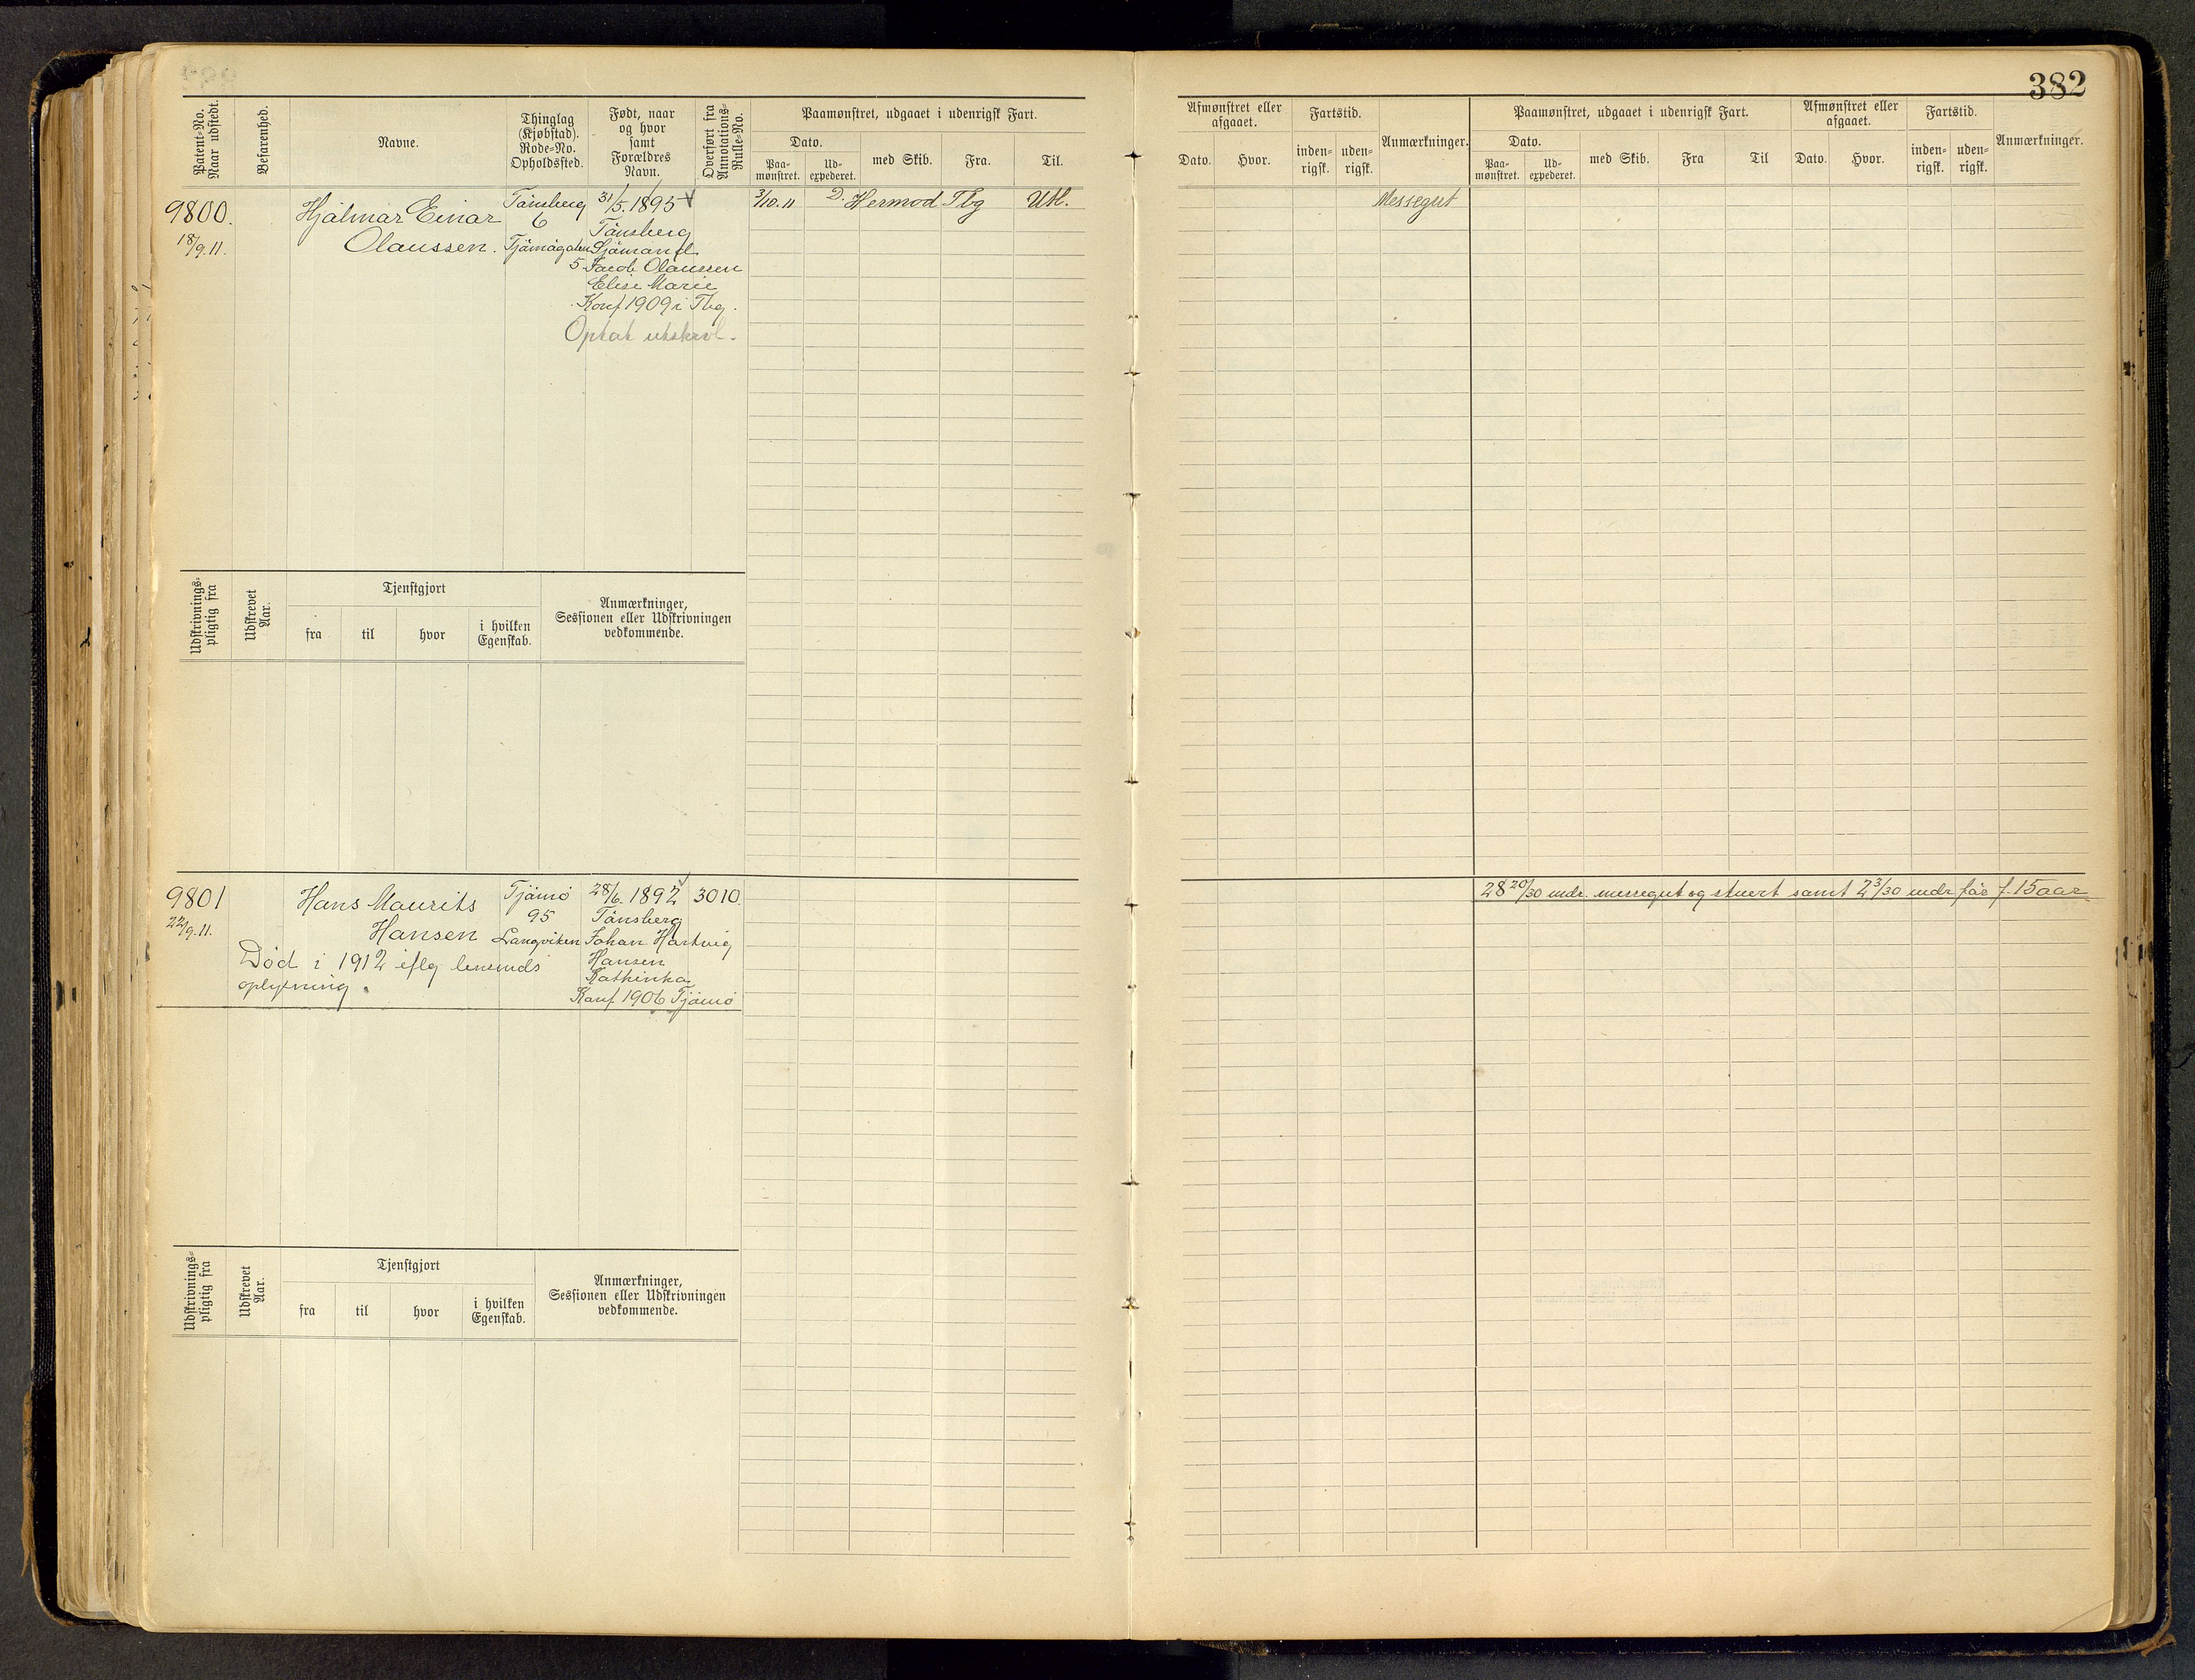 382
Patent-No.
Naar udstedt.
Befarenhed.
Navne.
Thinglag
(Kjøbstad).
Rode-No.
Opholdssted.
Født, naar
og hvor
samt
Forældres
Navn.
Overført fra
Annotations-
Rulle-No.
Paamønstret, udgaaet i udenrigsk Fart.
Dato.
Paa-
mønstret.
Ud-
expederet.
med Skib.
Fra.
Til.
Afmønstret eller
afgaaet.
Dato.
Hvor.
Fartstid.
inden-
rigsk.
uden-
rigsk.
Anmærkninger.
Paamønstret, udgaaet i udenrigsk Fart.
Dato.
Paa-
mønstret.
Ud-
expederet.
med Skib.
Fra
Til
Afmønstret eller
afgaaet.
Dato.
Hvor.
Fartstid.
inden-
rigsk.
uden-
rigsk.
Anmærkninger.
9800.
18/9.11.
Hjalmar Einar
Olaussen.
Tønsberg
6
Tjømøgaten
5
31/5.1895
Tønsberg
Sjømand
Jacob Olaussen
Elise Marie
Konf 1909 i Tbg.
Optat utskrevl.
3/10.11
D. Hermod
Tbg
Utl.
Messegut
Udskrivnings-
pligtig fra
Udskrevet
Aar.
Tjenstgjort
fra
til
hvor
i hvilken
Egenskab.
Anmærkninger,
Sessionen eller Udskrivningen
vedkommende.
9801
22/9.11.
Hans Maurits
Hansen
Død i 1912 iflg lensmds
oplysning.
Tjømø
95
Langviken
28/6.1892
Tønsberg
Johan Hartvig
Hansen
Kathinka
Konf 1906 Tjømø
3010.
28 20/30 mdr. messegut og stuert samt 2 3/30 mdr før f. 15 aar
Udskrivnings-
pligtig fra
Udskrevet
Aar.
Tjenstgjort
fra
til
hvor
i hvilken
Egenskab.
Anmærkninger,
Sessionen eller Udskrivningen
vedkommende.